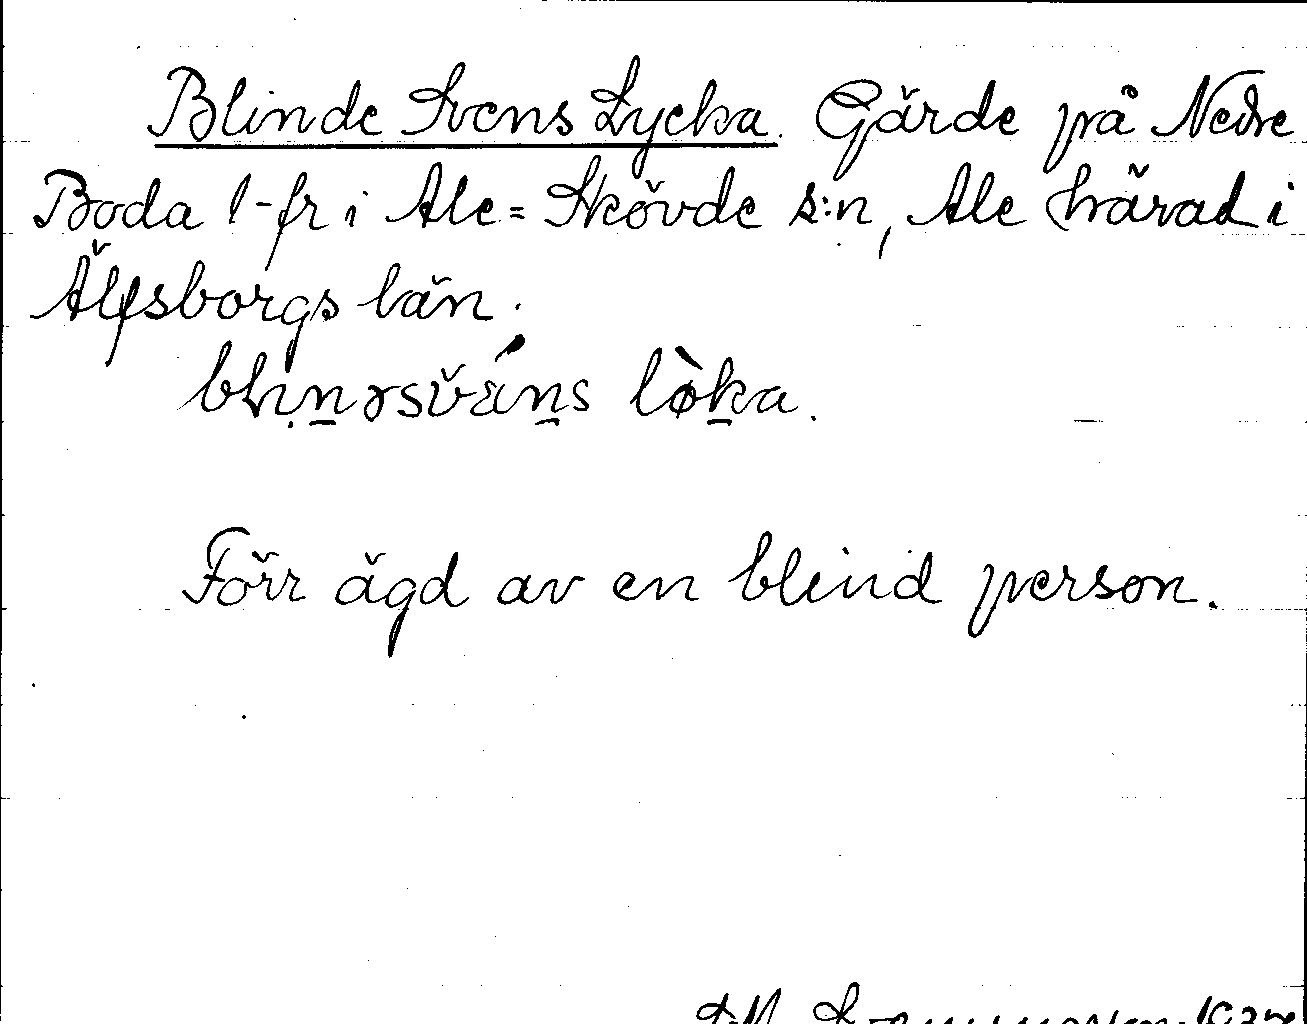 Blinde Svens Lycka. Gärde på Nedre
Boda 1-fr i Ale=Skövde s:n, Ale härad i
Älfsborgs län.
løka.
Förr ägd av en blind person.